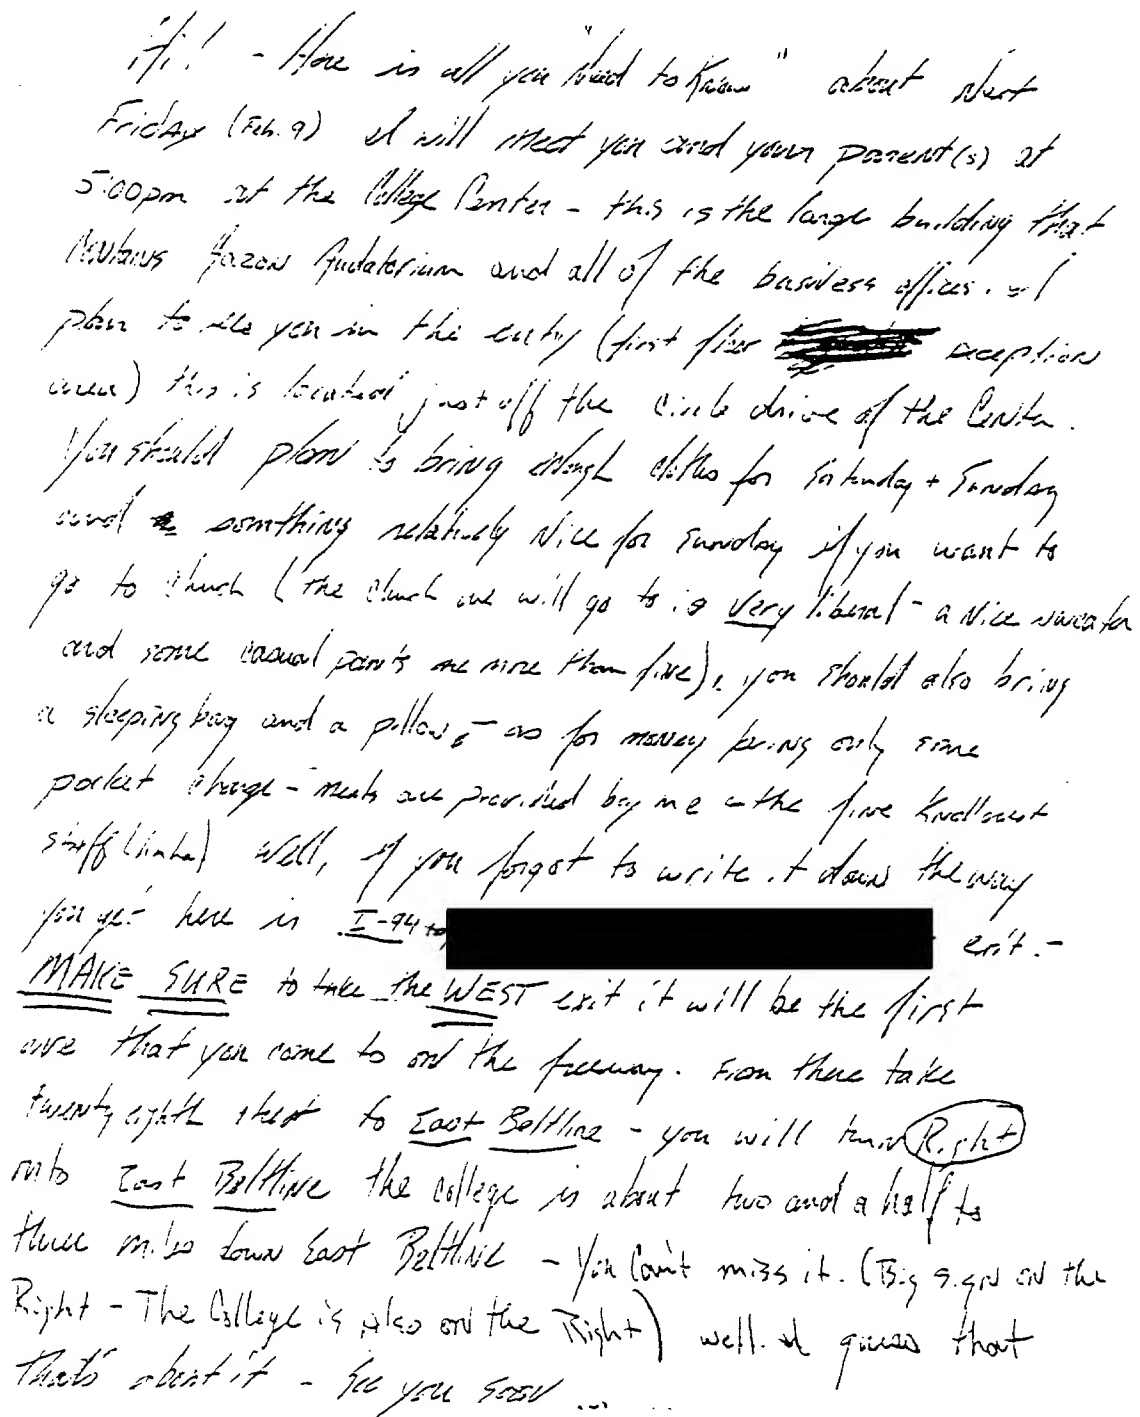 Hi! - Here is all you "Need to Know" about Next
Friday (Feb. 9) I will meet you and your parent(s) at
5:00pm at the College Center - this is the large building that
contains Hazon Audatorium and all of the business offices. I
plan to see you in the entry (first floor reception
area) this is located just off the circle drive of the Center.
You should plan to bring enough cloths for Saturday + Sunday
and somthing relatively Nice for Sunday if you want to
go to church (the church we will go to is very liberal - a Nice sweater
and some casual pants are more than fine), you should also bring
a sleeping bag and a pillow, - as for money bring only some
pocket change - meals are provided by me + the fine Knollcrest
staff (haha) Well, if you forgot to write it down the way
you get here is I-94 to exit. -
MAKE SURE to take the WEST exit it will be the first
one that you come to on the freeway. From there take
twenty eighth street to East Beltline - you will turn Right
onto East Beltline the college is about two and a half to
three miles down East Beltline - You Can't miss it. (Big sign on the
Right - The College is also on the Right) well. I guess that
that's about it - See you soon ...